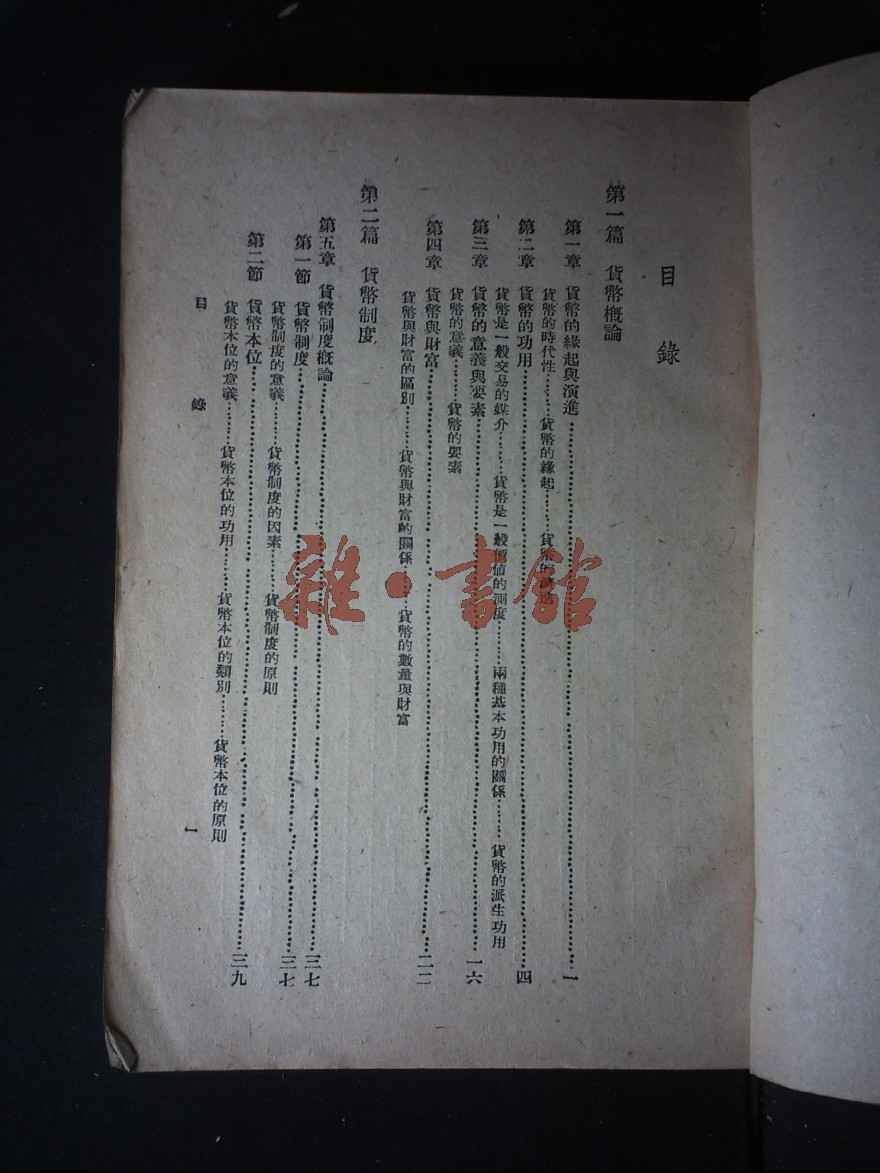 目錄
第一篇 貨幣概論
第一章 貨幣的緣起與演進……一
貨幣的時代性……貨幣的緣起……貨幣的演進
第二章 貨幣的功用……四
貨幣是一般交易的媒介……貨幣是一般價值的測度……兩種基本功用的關係……貨幣的派生功用
第三章 貨幣的意義與要素……一六
貨幣的意義……貨幣的要素
第四章 貨幣與財富……二二
貨幣與財富的區別……貨幣與財富的關係……貨幣的數量與財富
第二篇 貨幣制度
第五章 貨幣制度概論……三七
第一節 貨幣制度……三七
貨幣制度的意義……貨幣制度的因素……貨幣制度的原則
第二節 貨幣本位……三九
貨幣本位的意義……貨幣本位的功用……貨幣本位的類別……貨幣本位的原則
目錄 一
雜·書館